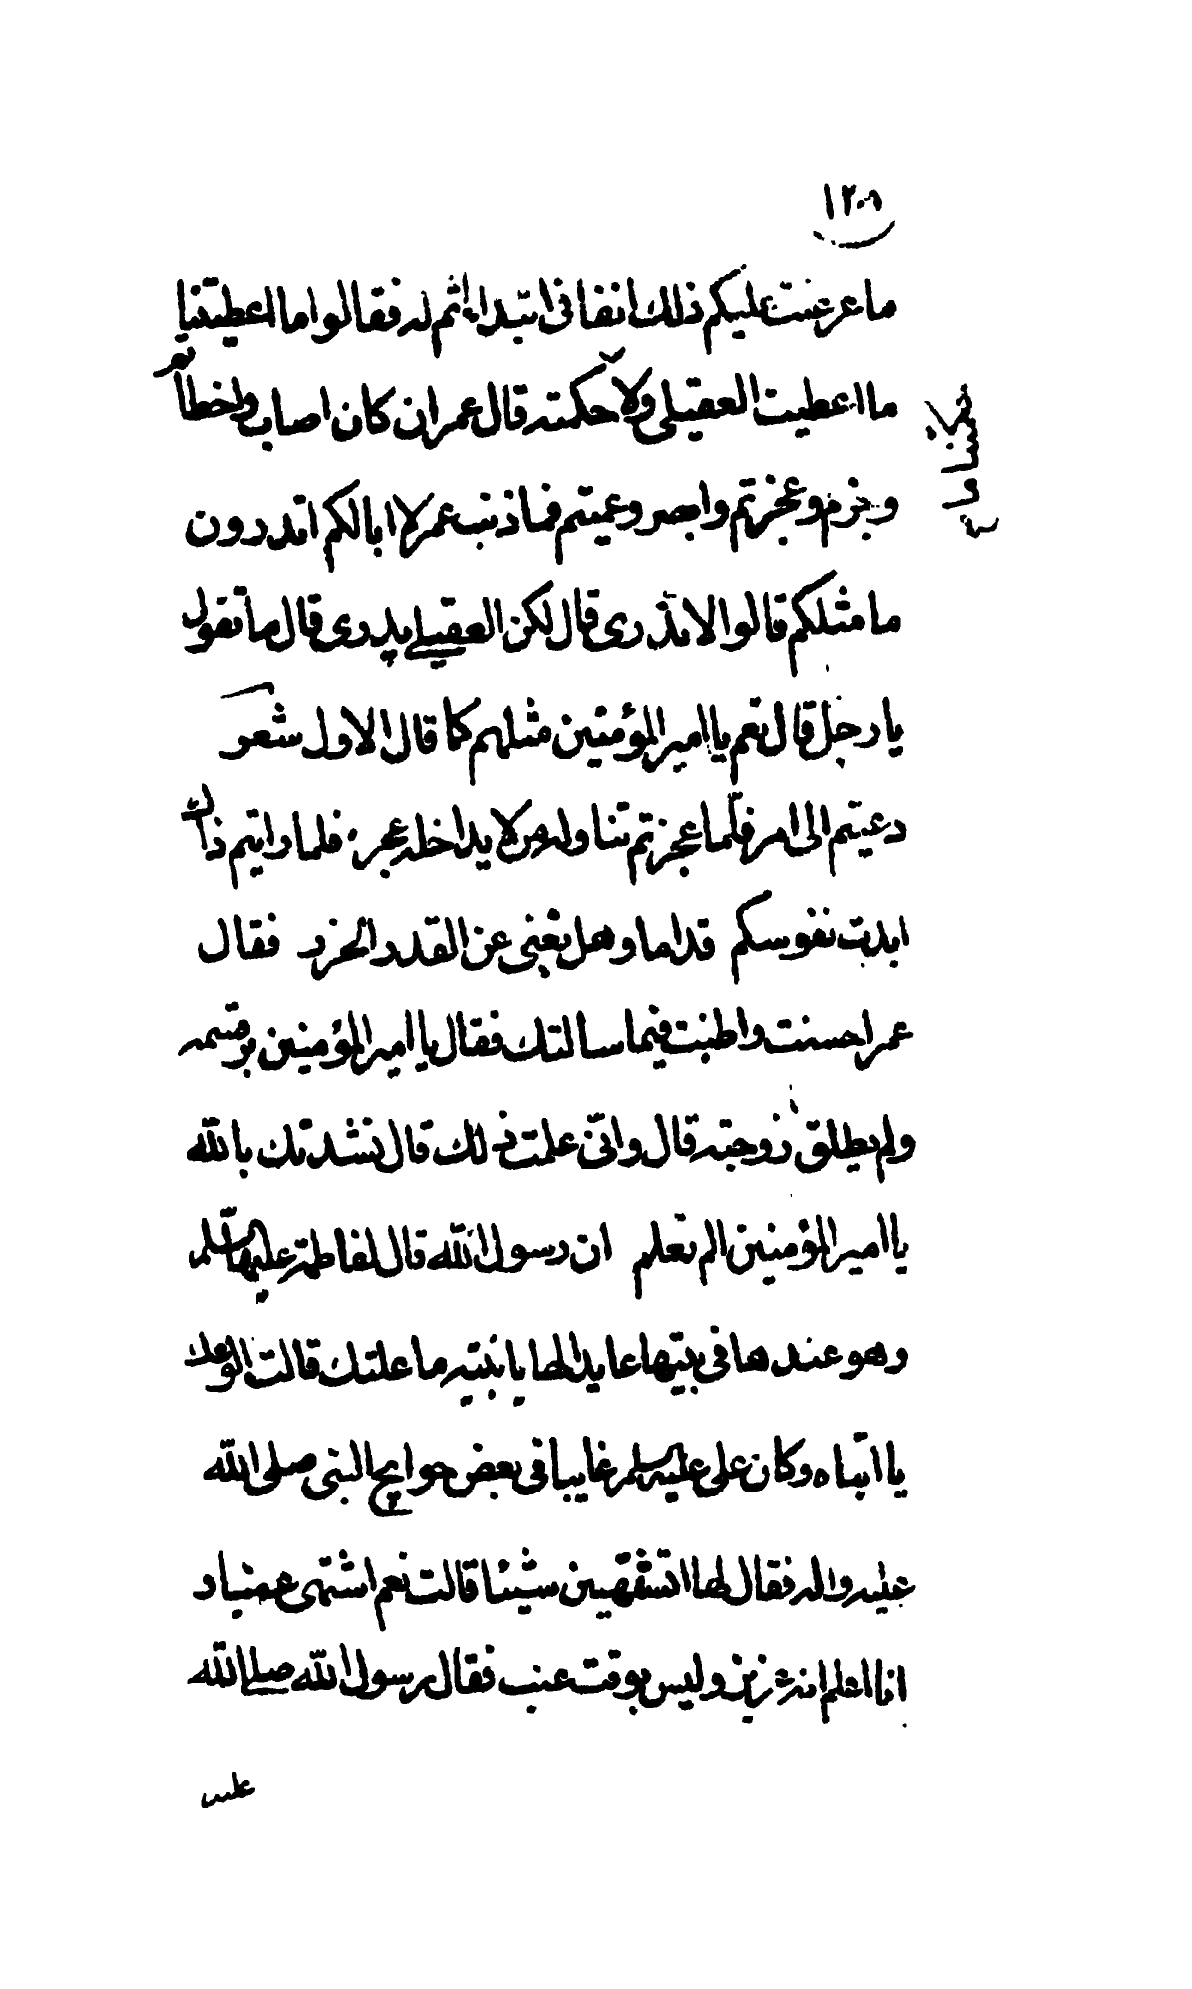 ١٢٠٨
ما عرضت عليكم ذلك انفا في ابتداء اثم له فقالوا ما اعطيتنا
ما اعطيت العقيلي ولا حكمته قال عمر ان كان اصاب واخطأتم
وجزم وعجزتم وابصر وعميتم فما ذنب عمر لا ابا لكم اتدرون
ما مثلكم قالوا لا ندرى قال لكن العقيلي يدرى قال ما تقول
يا رجل قال نعم يا امير المؤمنين مثلهم كما قال الاول شعر
دعيتم الى امر فلما عجزتم تناوله من لا يداخله عجز فلما رايتم ذاك
ابدت نفوسكم قداما وهل يغنى عن القدر الحزر فقال
عمر احسنت واطنبت فيما سالتك فقال يا امير المؤمنين بر قسمه
ولم يطلق زوجته قال وانى علمت ذلك قال نشدتك بالله
يا امير المؤمنين الم تعلم ان رسول الله قال لفاطمة عليها
وهو عندها في بيتها عايد لها يا بنيه ما علتك قالت الوعك
يا ابتاه وكان على غايبا في بعض حوايج النبى صلى الله
عليه واله فقال لها اتشتهين شيئا قالت نعم اشتهى عنبا و
انا اعلم انه عزيز وليس بوقت عنب فقال رسول الله صلى الله